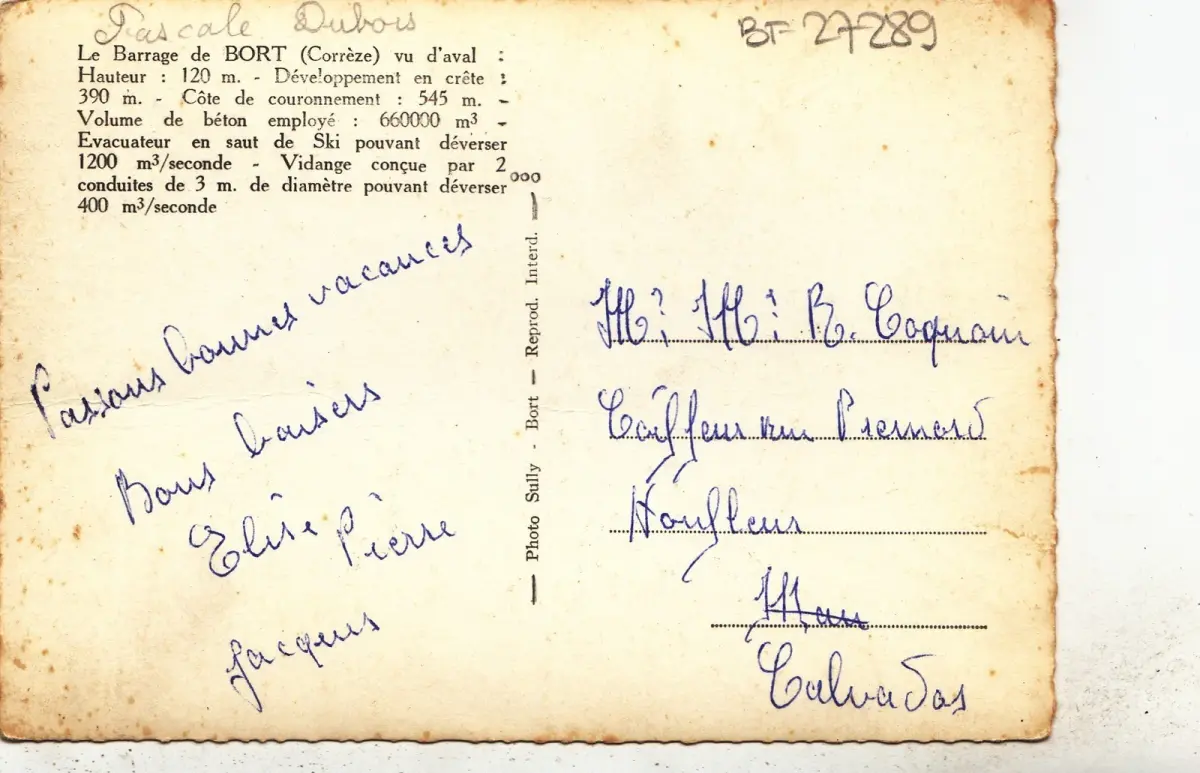 Pascale Dubois
BT-27289
Le Barrage de BORT (Corrèze) vu d'aval :
Hauteur : 120 m. - Développement en crête :
390 m. - Côte de couronnement : 545 m. -
Volume de béton employé : 660000 m3 -
Evacuateur en saut de Ski pouvant déverser
1200 m3/seconde - Vidange conçue par 2
conduites de 3 m. de diamètre pouvant déverser
400 m3/seconde
ooo
Passons bonnes vacances
Bons baisers
Elise Pierre
Jacques
— Photo Sully - Bort — Reprod. Interd. —
Mr Mr R.
Coiffeur
Honfleur
Calvados